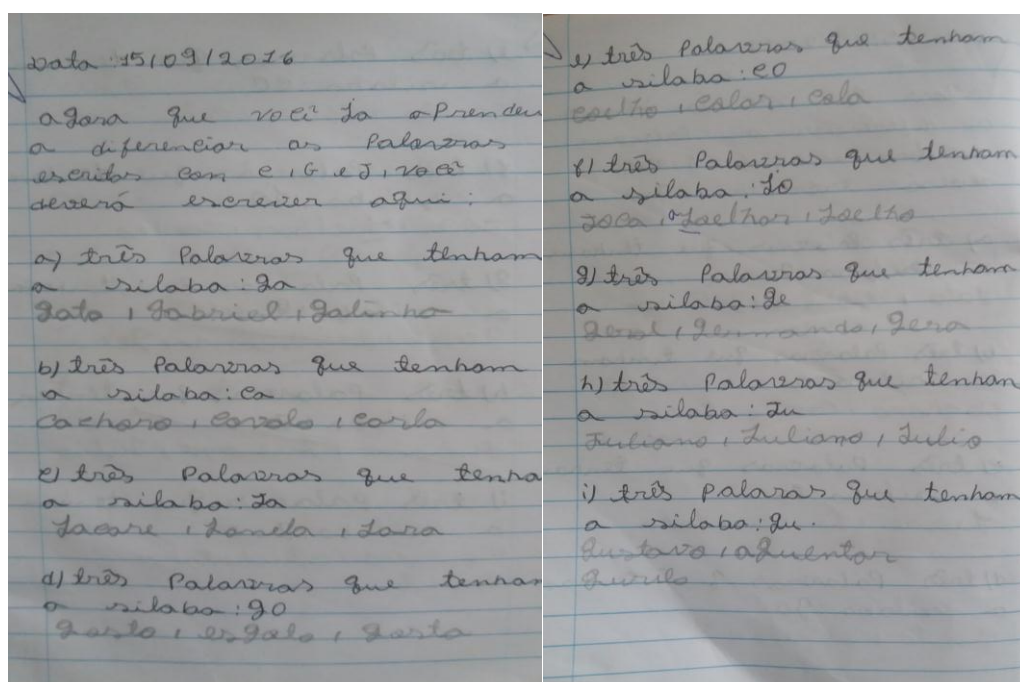 Data: 15/09/2016
agora que você Ja aPrendeu
a diferenciar as Palavras
escritas com c, G e J, você
deverá escrever aqui:
a) três Palavras que tenham
a silaba: ga
gato, gabriel, galinha
b) três Palavras que tenham
a silaba: ca
cachoro, cavalo, carla
c) três Palavras que tenha
a silaba: Ja
Jacare, Janela, Jara
d) três Palavras que tenham
a silaba: go
gosto, esgolo, gosta
e) três Palavras que tenham
a silaba: co
coelho, colar, cola
f) três Palavras que tenham
a silaba: Jo
Joca, aJoelhar, Joelho
g) três Palavras que tenham
a silaba: ge
geral, germando, gera
h) três Palavras que tenham
a silaba: Ju
Juliana, Juliano, Julio
i) três Palavras que tenham
a silaba: gu.
gustavo, aguentar
gurilo